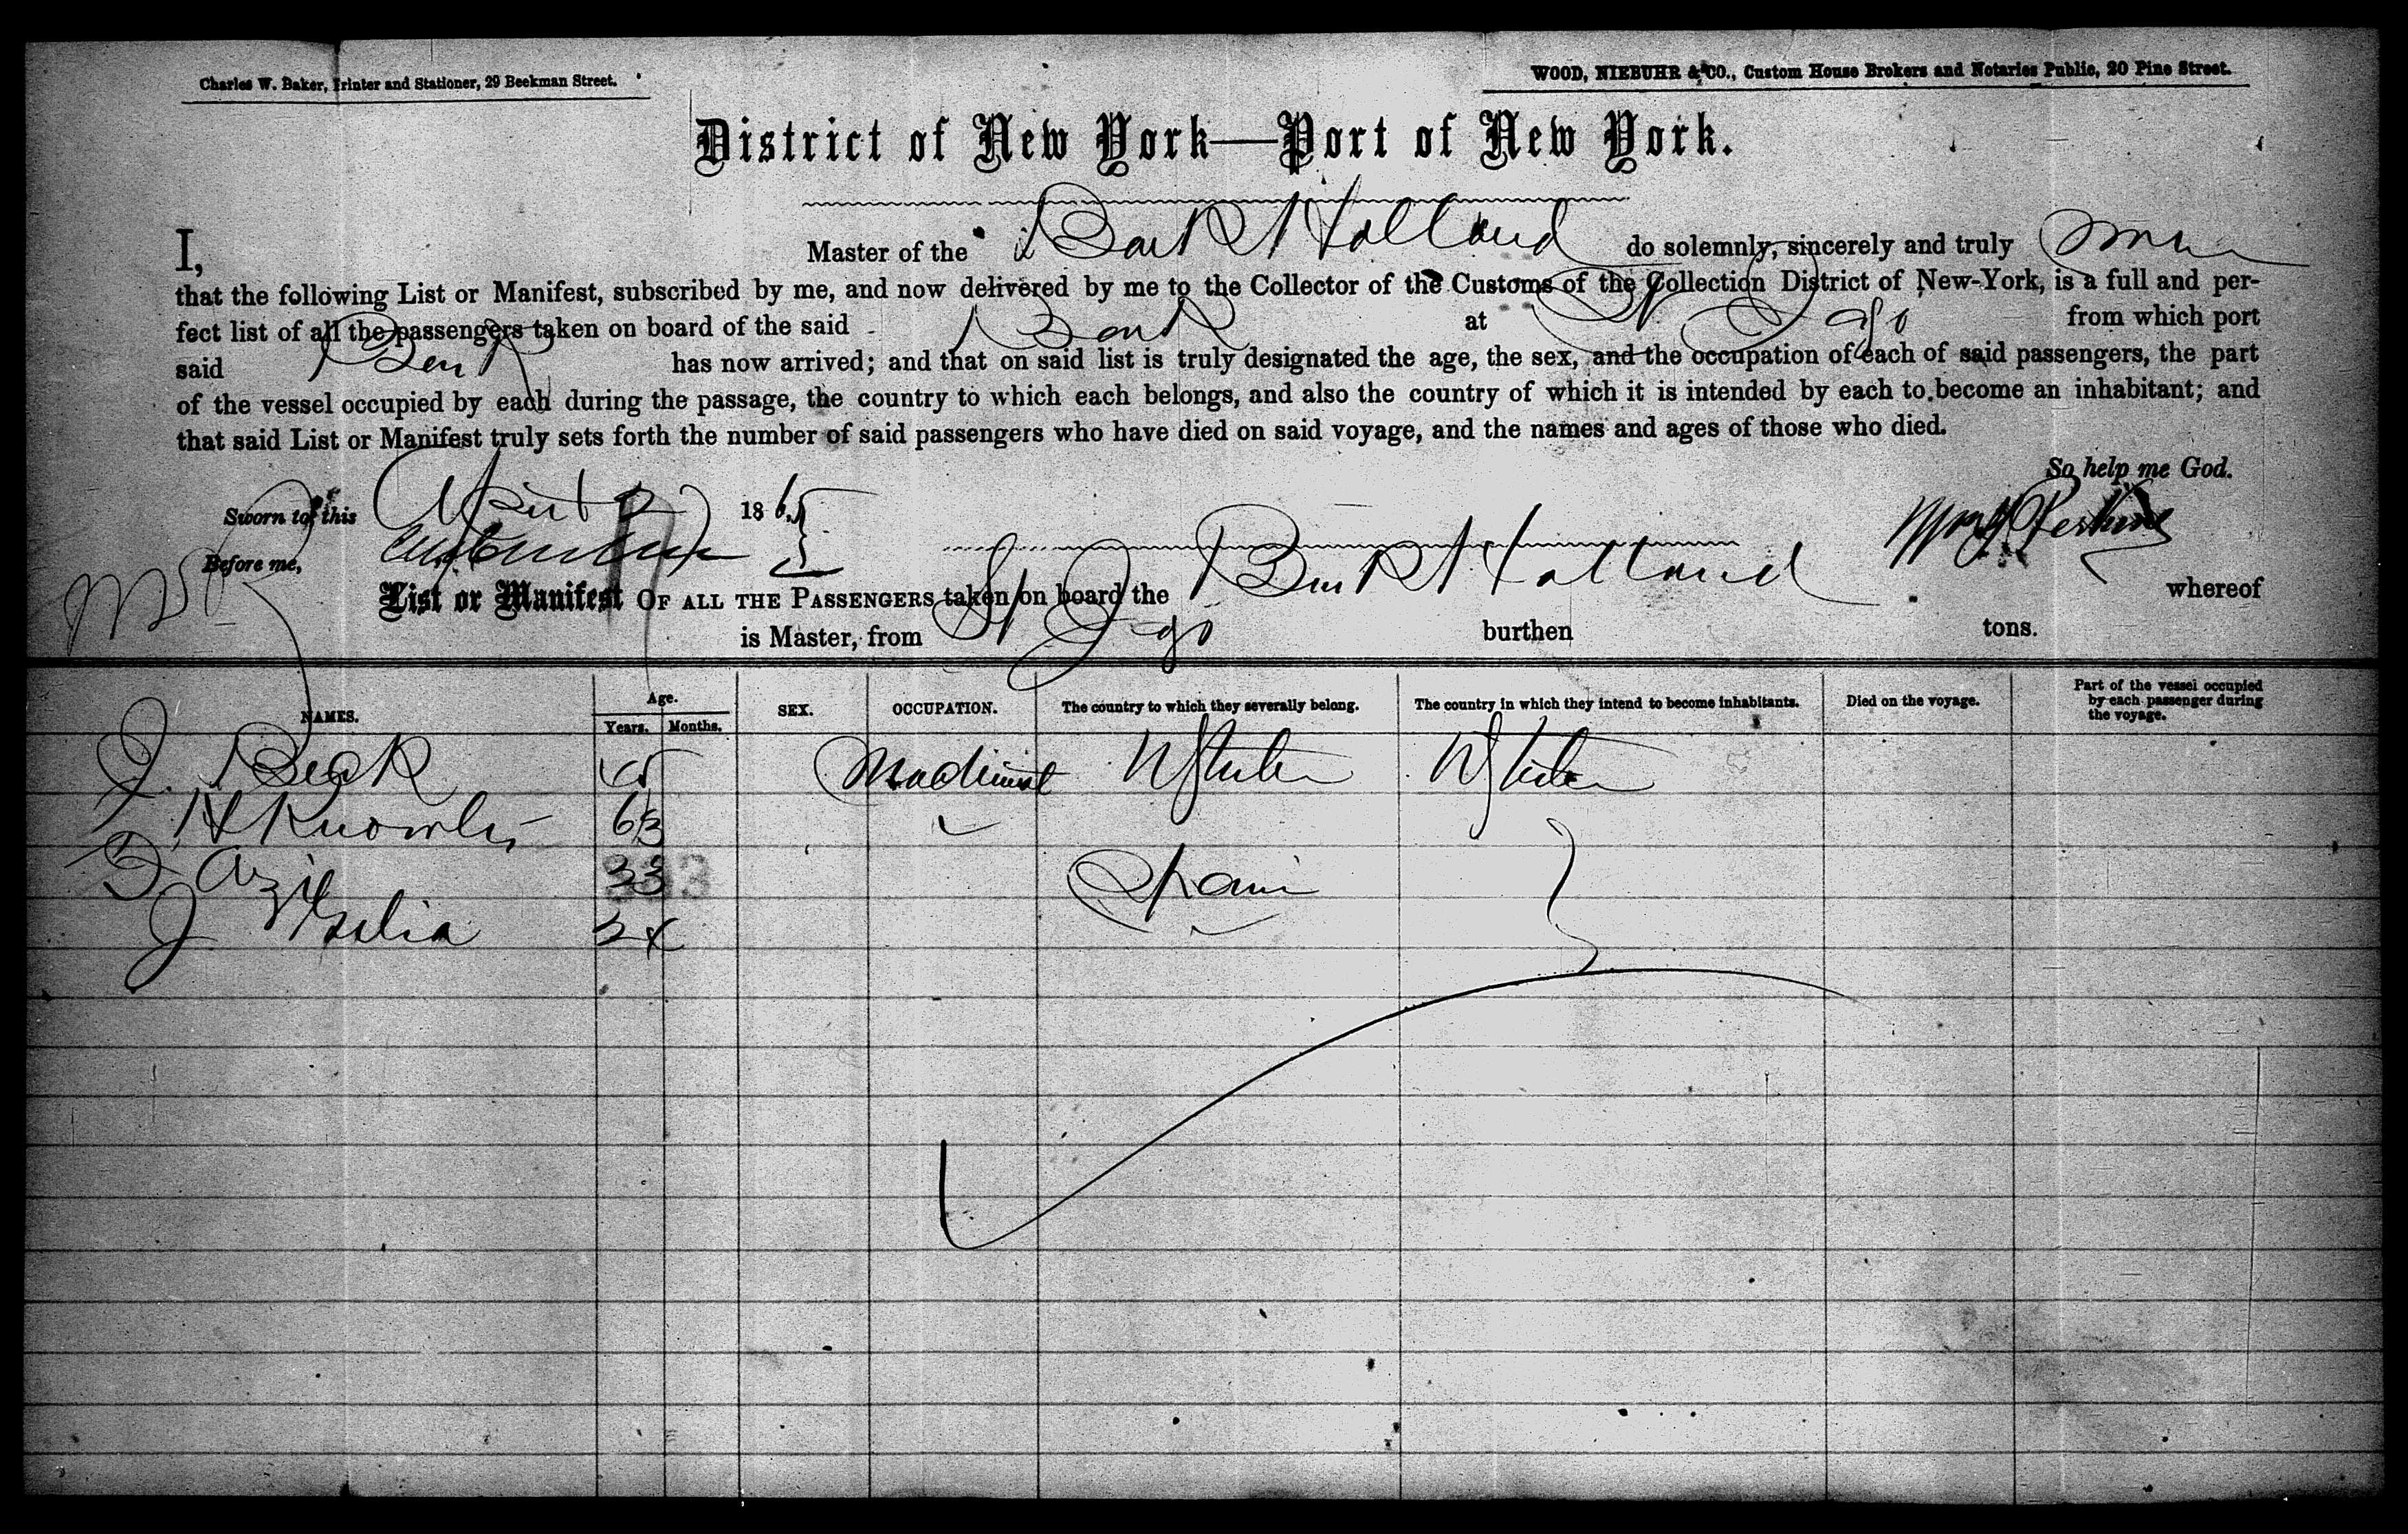 Charles W. Baker, Printer and Stationer, 29 Beekman Street.
WOOD, NIEBUHR & CO., Custom House Brokers and Notaries Public, 20 Pine Street.
District of New York—Port of New York.
I, Master of the Bark Holland do solemnly, sincerely and truly swear
that the following List or Manifest, subscribed by me, and now delivered by me to the Collector of the Customs of the Collection District of New-York, is a full and per-
fect list of all the passengers taken on board of the said Bark at St Jago from which port
said Bark has now arrived; and that on said list is truly designated the age, the sex, and the occupation of each of said passengers, the part
of the vessel occupied by each during the passage, the country to which each belongs, and also the country of which it is intended by each to become an inhabitant; and
that said List or Manifest truly sets forth the number of said passengers who have died on said voyage, and the names and ages of those who died.
So help me God.
Sworn to this April 1865
Before me,
Perkins
List or Manifest OF ALL THE PASSENGERS taken on board the Bark Holland whereof
is Master, from St Jago burthen tons.
NAMES. Age. Years. Months. SEX. OCCUPATION. The country to which they severally belong. The country in which they intend to become inhabitants. Died on the voyage. Part of the vessel occupied by each passenger during the voyage.
J. Beck U States U States
H Knowles 63
33 Spain
J